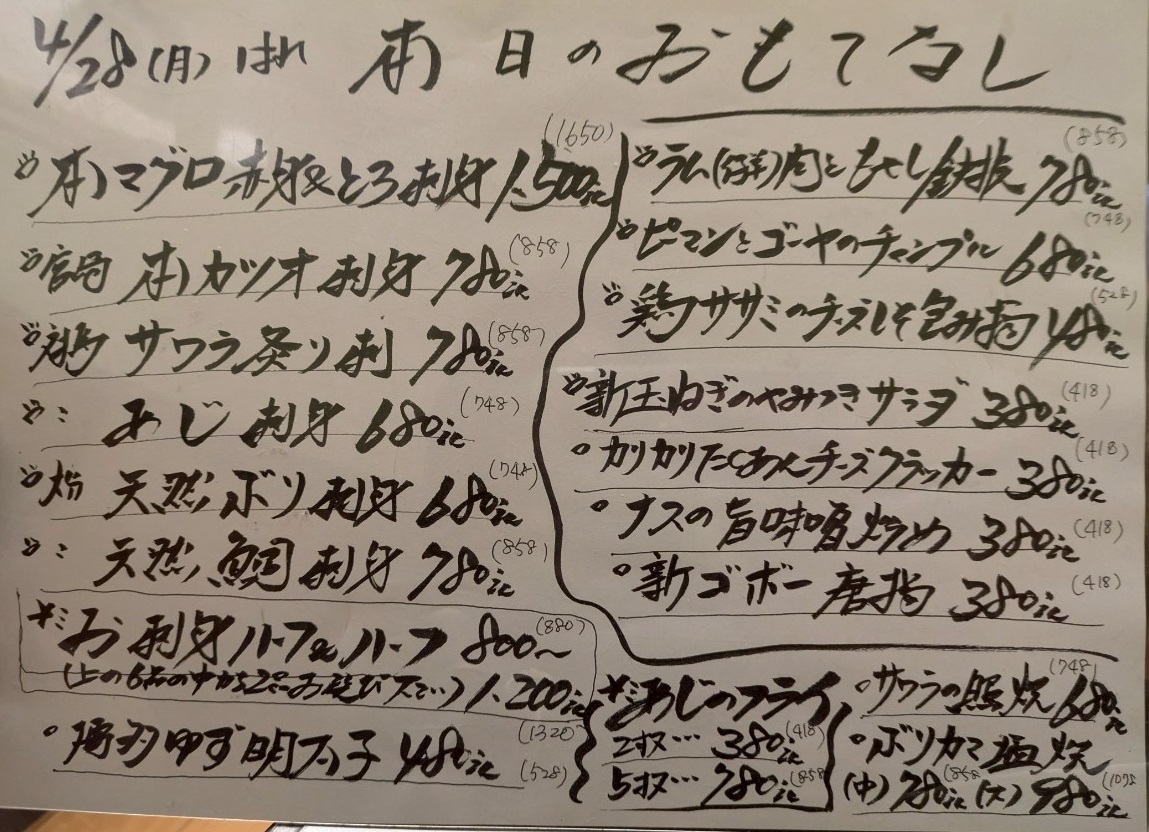 4/28(月) はれ 本日のおもてなし
本マグロ赤身&とろ刺身 1,500 (1650)
宮崎 本カツオ刺身 780 (858)
サワラ炙り刺 780 (858)
〃: あじ刺身 680 (748)
天然ブリ刺身 680 (748)
〃: 天然鯛刺身 780 (858)
お刺身ハーフ&ハーフ 800〜 (880)
(上の6点の中から2点お選び下さい) 1,200 (1320)
ゆず明太子 480 (528)
ラム(仔羊)肉ともやし鉄板 780 (858)
ピーマンとゴーヤのチャンプル 680 (748)
鶏ササミのチーズしそ包み揚 480 (528)
新玉ねぎのやみつきサラダ 380 (418)
カリカリたくあんチーズクラッカー 380 (418)
ナスの旨味噌炒め 380 (418)
新ゴボー唐揚 380 (418)
あじのフライ
2ヶ… 380 (418)
5ヶ… 780 (858)
サワラの照焼 680 (748)
ブリカマ塩焼
(中) 780 (858) (大) 980 (1078)